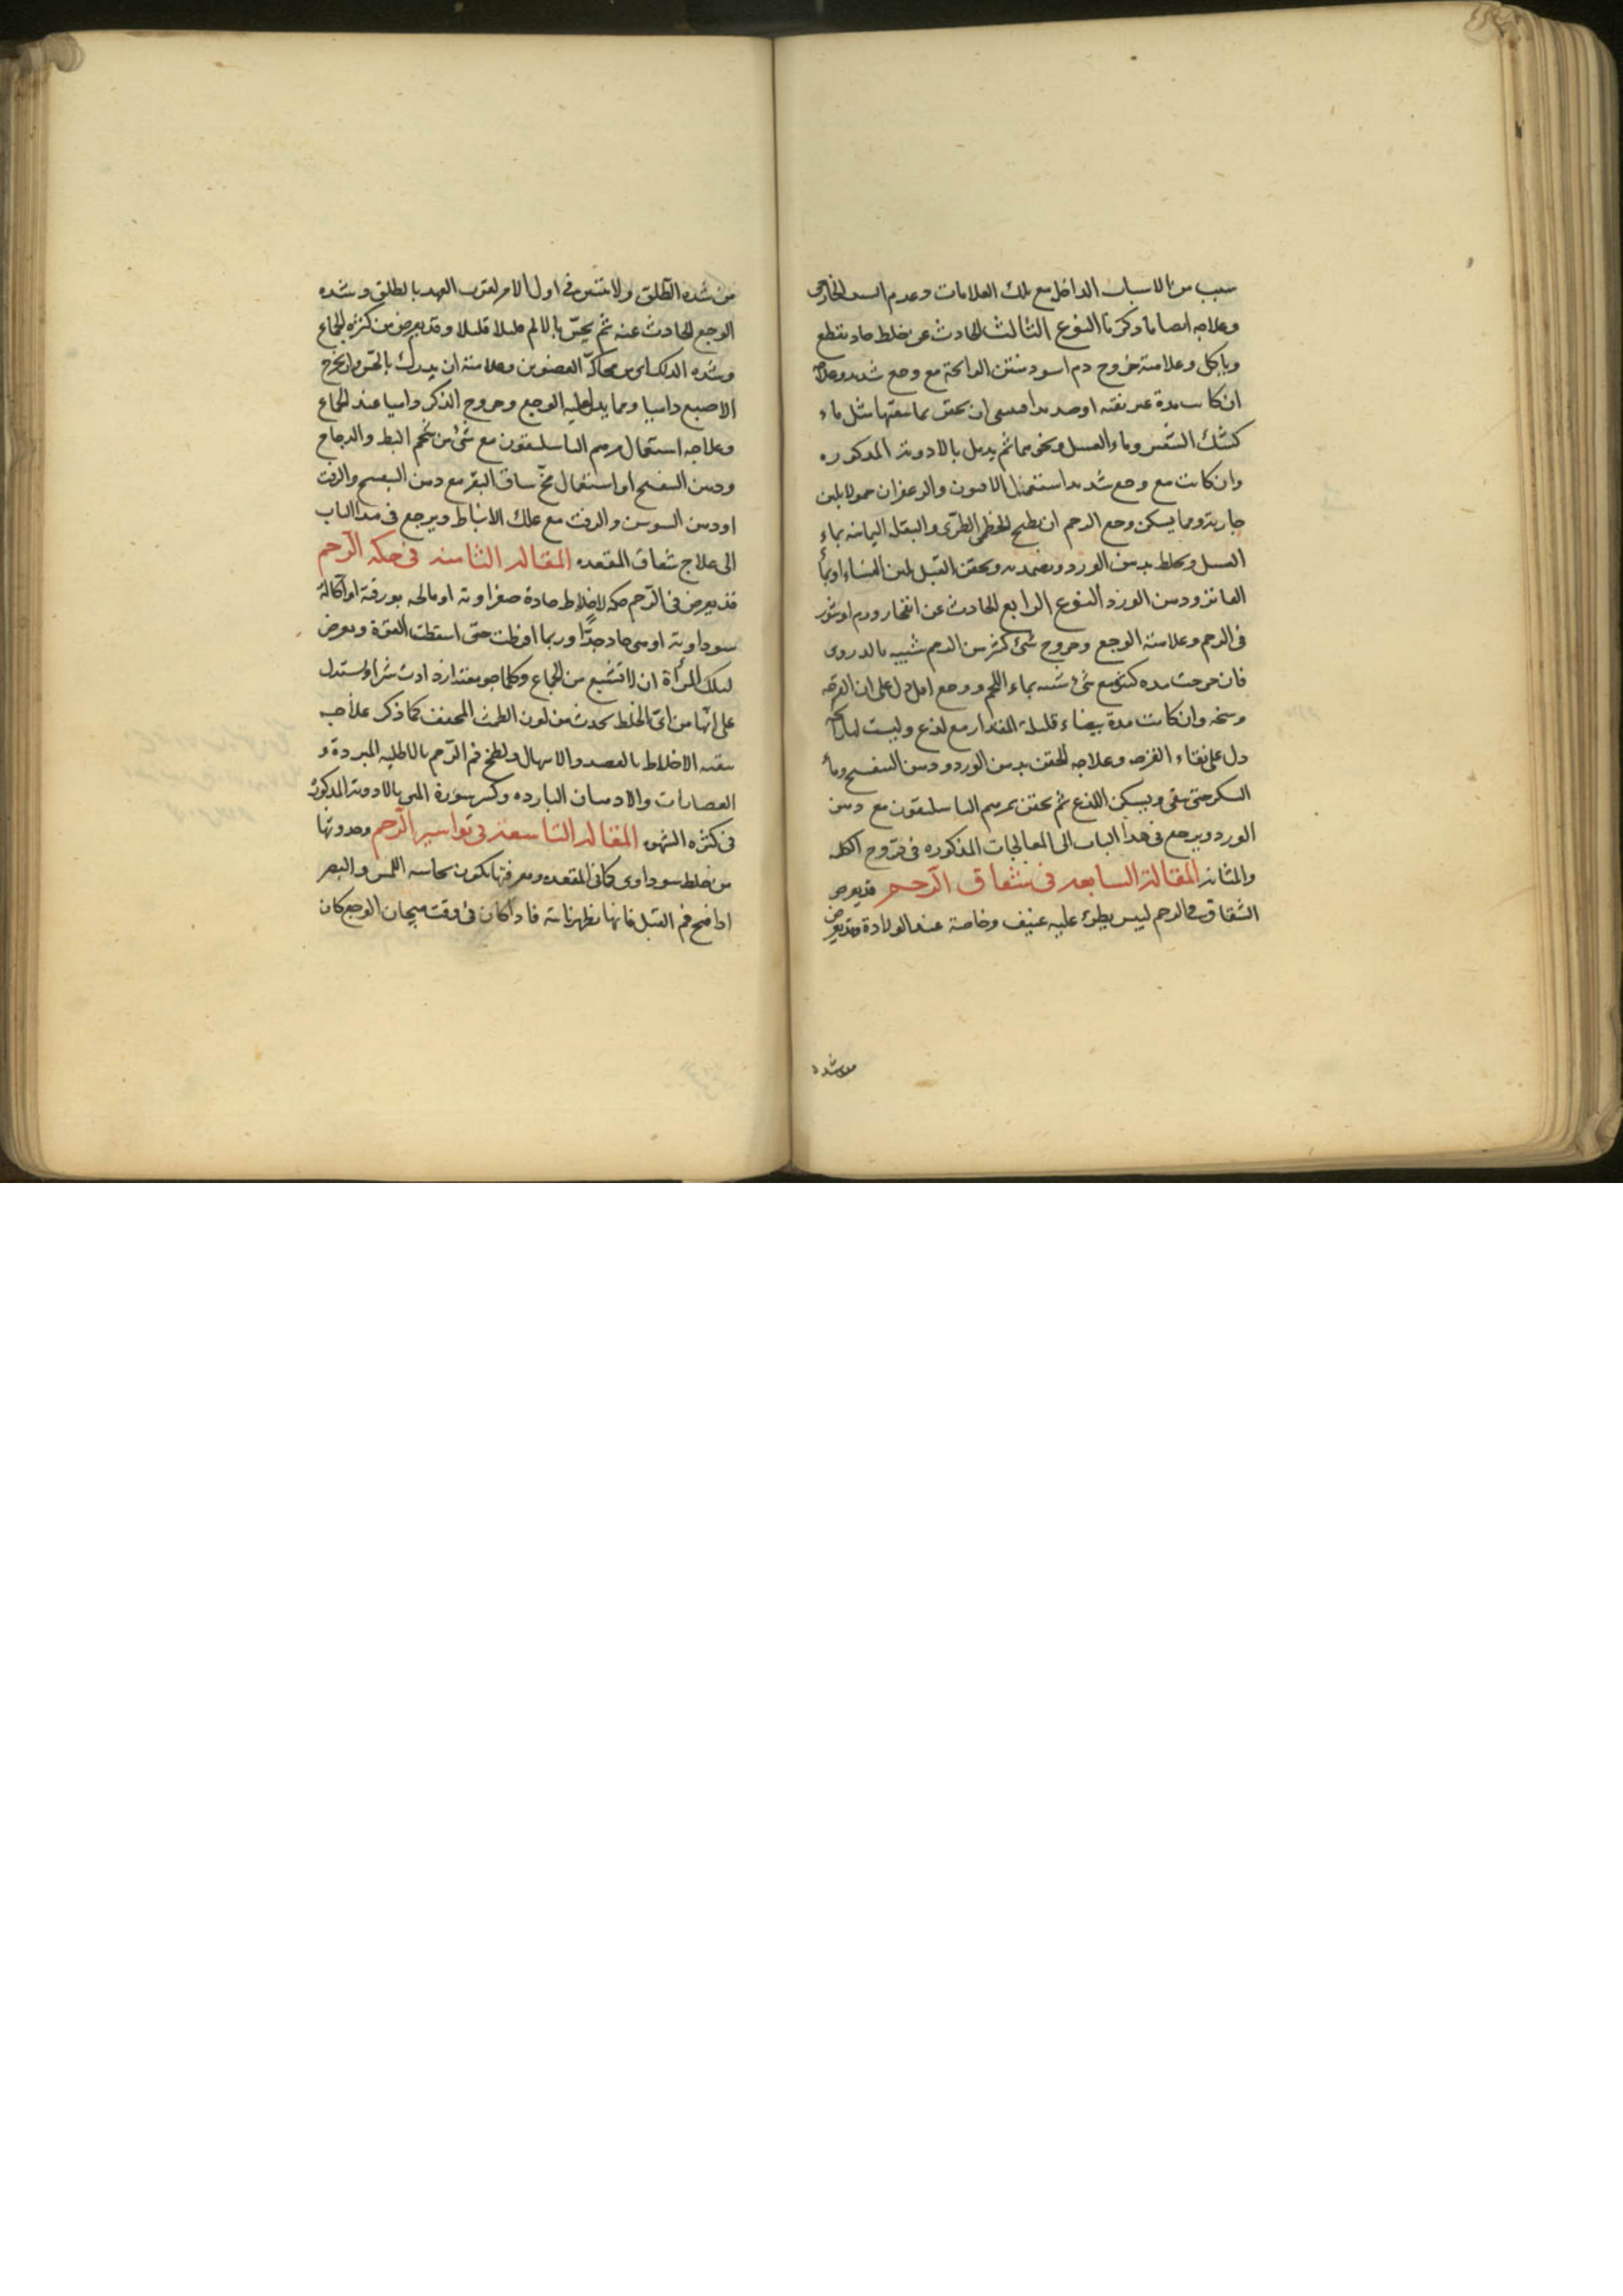 سبب من الاسباب الداخل مع تلك العلامات وعدم السبب الخارجى
وعلاجه ايضا ما ذكرنا النوع الثالث الحادث عن خلط حاد يقطع
وياكل وعلامته خروج دم اسود منتن الرائحة مع وجع شديد وعلاجه
ان كانت مدة غير نقية او صديدا فينبغى ان يحقن بما ينقيها مثل ماء
كشك الشعير وماء العسل ونحوهما ثم يدمل بالادوية المذكوره
وان كانت مع وجع شديد استعمل الافيون والزعفران حمولا بلبن
جارية ومما يسكن وجع الرحم ان يطبخ الخطمى الطرى والبقلة اليمانيه بماء
العسل ويخلط بدهن الورد ويضمد به ويحقن القبل بلبن النساء او بماء
ودهن الورد النوع الرابع الحادث عن انفجار ورم او بثور
فى الرحم وعلامته الوجع وخروج شئ كثير من الدم شبيه بالدردى
فان خرجت مده كثيره مع شئ شبيه بماء اللحم ووجع اقل دل على ان القرحه
وسخه وان كانت مدة بيضاء قليلة المقدار مع لذع وليست
دل على نقاء القرحه وعلاجه الحقن بدهن الورد ودهن البنفسج وماء
السكر حتى ينقى ويسكن اللذع ثم يحقن بمرهم الباسليقون مع دهن
الورد ويرجع فى هذا الباب الى المعالجات المذكوره فى قروح الكلى
والمثانه المقالة السابعه فى شقاق الرحم قد يعرض
الشقاق فى الرحم ليبس يطرئ عليه عنيف وخاصة عند الولادة وقد يعرض
من شده
من شده الطلق ولا يتبين فى اول الامر لقرب العهد بالطلق وشده
الوجع الحادث عنه ثم يحس بالالم قليلا قليلا وقد يعرض من كثره الجماع
وشده الدلك اى من محاكة العضوين وعلامته ان يدرك بالحس وان يخرج
الاصبع داميا ومما يدل عليه الوجع وخروج الذكر داميا عند الجماع
وعلاجه استعمال مرهم الباسليقون مع شئ من شحم البط والدجاج
ودهن البنفسج او استعمال مخ ساق البقر مع دهن البنفسج والزفت
او دهن السوسن والزفت مع علك الانباط ويرجع فى هذا الباب
الى علاج شقاق المقعده المقاله الثامنه فى حكه الرحم
قد يعرض فى الرحم حكه لاخلاط حادة صفراوية او مالحه بورقية او اكالة
سوداوية او منى حاد جدا وربما افرطت حتى اسقطت القوة ويعرض
لتلك المرأة ان لا تشبع من الجماع وكلما جومعت ازدادت شرا ويستدل
على انها من اى الخلط يحدث من لون الطمث المجفف كما ذكر علاجه
تنقيه الاخلاط بالفصد والاسهال ولطخ فم الرحم بالاطليه المبردة و
العصارات والادهان البارده وكسر سورة المنى بالادوية المذكورة
فى كثره الشهوه المقاله التاسعة فى بواسير الرحم وحدوثها
من خلط سوداوى كما فى المقعده ومعرفتها يكون بحاسه اللمس والبصر
اذا فتح فم القبل فانها تظهر ناتية فاذا كان فى وقت هيجان الوجع كان